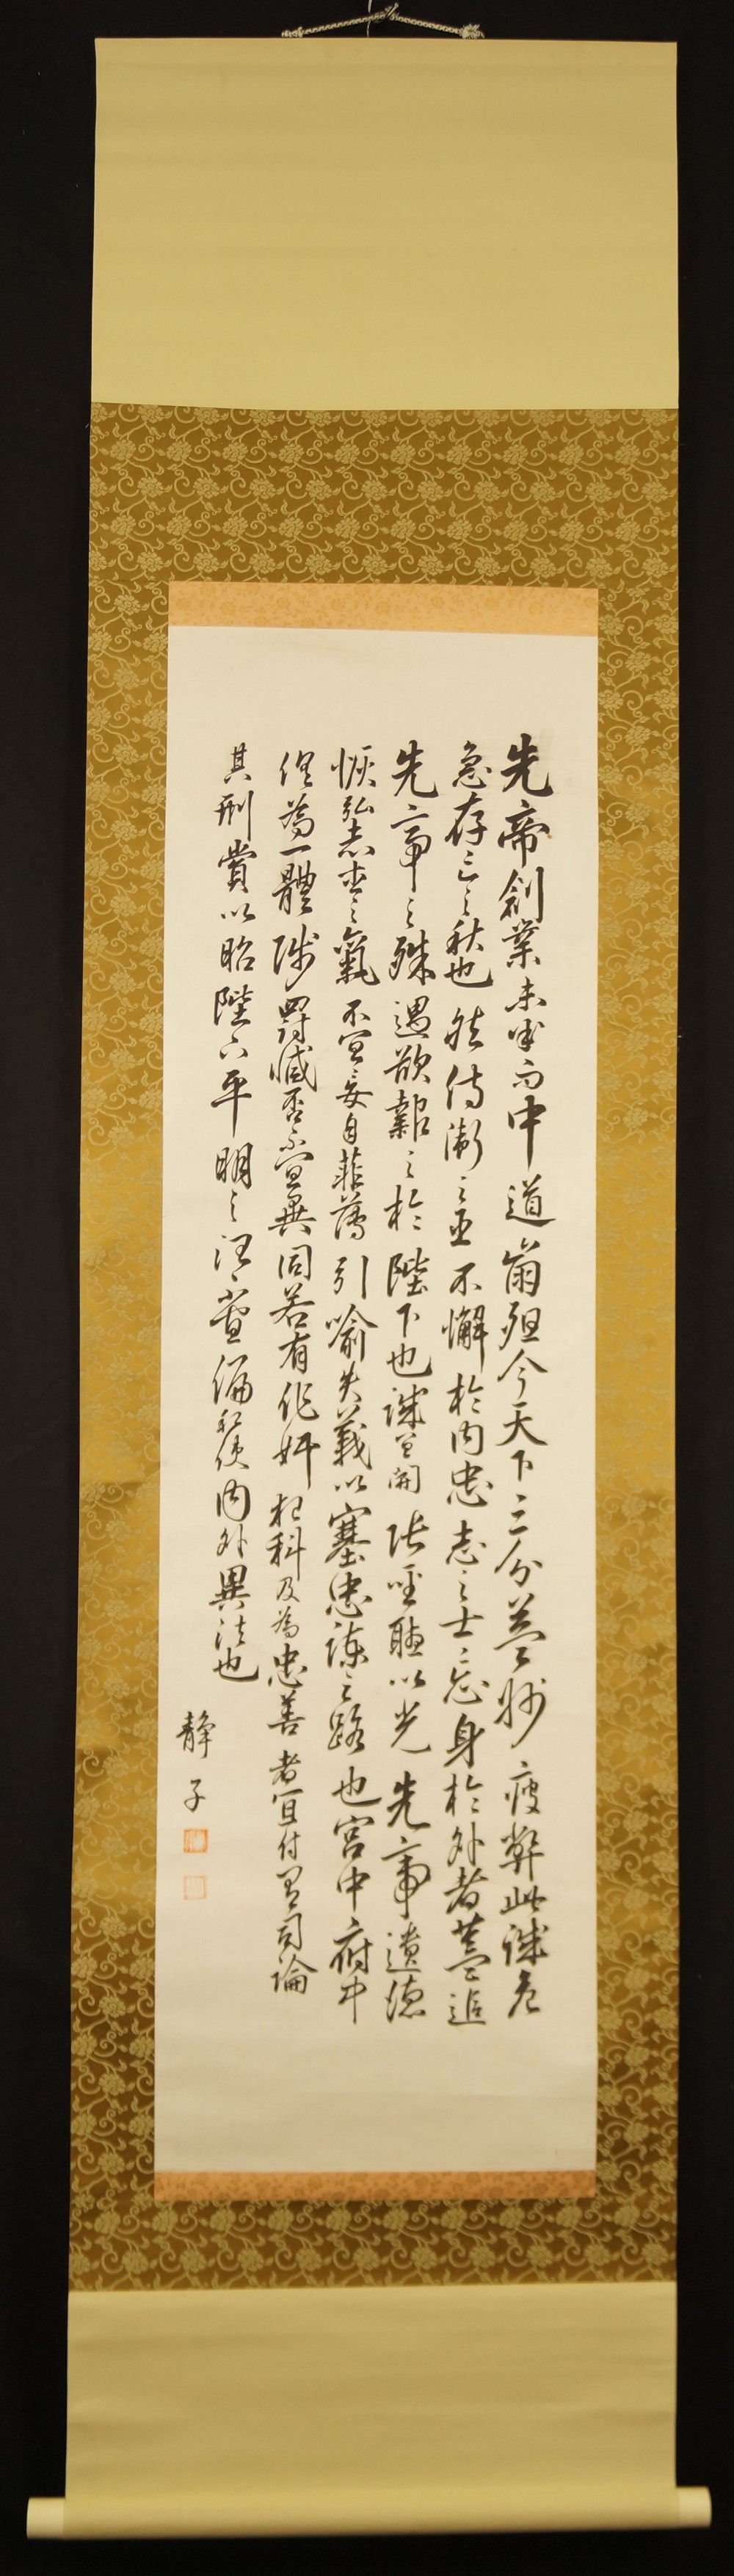 先帝創業未半而中道崩殂今天下三分益州疲弊此誠危
急存亡之秋也然侍衛之臣不懈於內忠志之士忘身於外者蓋追
先帝之殊遇欲報之於陛下也誠宜開張聖聽以光先帝遺德
恢弘志士之氣不宜妄自菲薄引喻失義以塞忠諫之路也宮中府中
俱為一體陟罰臧否不宜異同若有作奸犯科及為忠善者宜付有司論
其刑賞以昭陛下平明之治不宜偏私使內外異法也
靜子